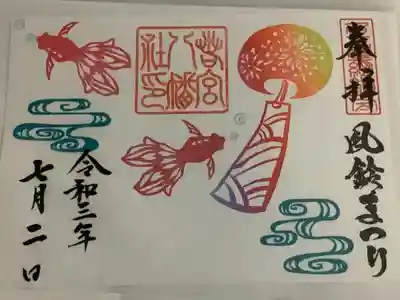 奉拝
風鈴まつり
若宮
八幡
社印
令和三年
七月二日